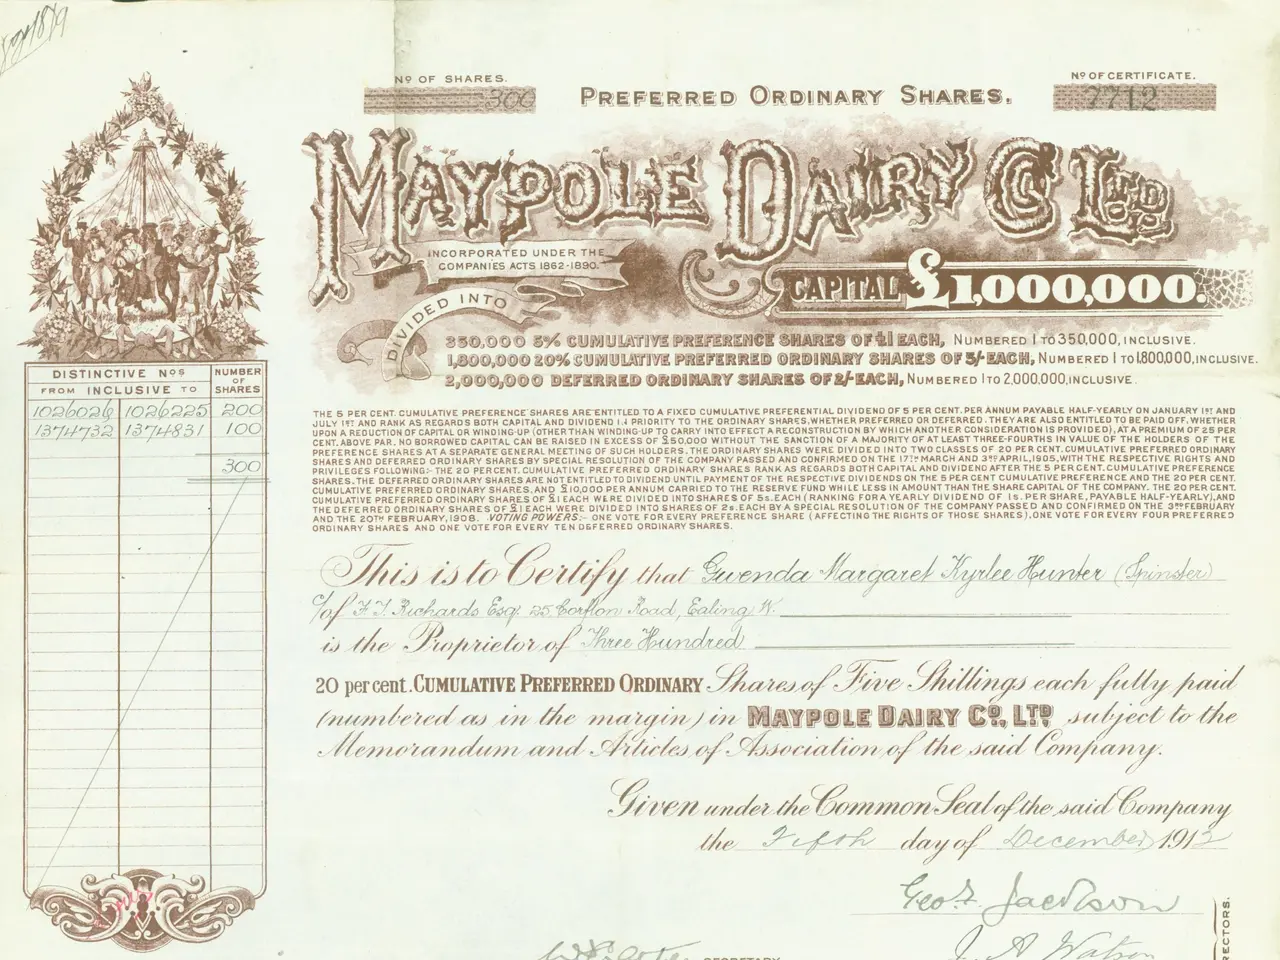 No OF SHARES.
300
PREFERRED ORDINARY SHARES.
No OF CERTIFICATE.
7712
MAYPOLE DAIRY Co LTD
INCORPORATED UNDER THE
COMPANIES ACTS 1862-1890.
CAPITAL £1,000,000.
DIVIDED INTO
350,000 5% CUMULATIVE PREFERENCE SHARES OF £1 EACH, NUMBERED 1 TO 350,000, INCLUSIVE.
1,800,000 20% CUMULATIVE PREFERRED ORDINARY SHARES OF 5/- EACH, NUMBERED 1 TO 1,800,000, INCLUSIVE.
2,000,000 DEFERRED ORDINARY SHARES OF 2/- EACH, NUMBERED 1 TO 2,000,000, INCLUSIVE.
DISTINCTIVE Nos
NUMBER OF SHARES
FROM INCLUSIVE TO
1026026 1026225 200
1374732 1374831 100
300
THE 5 PER CENT. CUMULATIVE PREFERENCE SHARES ARE ENTITLED TO A FIXED CUMULATIVE PREFERENTIAL DIVIDEND OF 5 PER CENT. PER ANNUM PAYABLE HALF-YEARLY ON JANUARY 1ST AND
JULY 1ST AND RANK AS REGARDS BOTH CAPITAL AND DIVIDEND IN PRIORITY TO THE ORDINARY SHARES, WHETHER PREFERRED OR DEFERRED. THEY ARE ALSO ENTITLED TO BE PAID OFF, WHETHER
UPON A REDUCTION OF CAPITAL OR WINDING-UP (OTHER THAN WINDING-UP TO CARRY INTO EFFECT A RECONSTRUCTION BY WHICH ANOTHER CONSIDERATION IS PROVIDED), AT A PREMIUM OF 25 PER
CENT. ABOVE PAR. NO BORROWED CAPITAL CAN BE RAISED IN EXCESS OF £50,000 WITHOUT THE SANCTION OF A MAJORITY OF AT LEAST THREE-FOURTHS IN VALUE OF THE HOLDERS OF THE
PREFERENCE SHARES AT A SEPARATE GENERAL MEETING OF SUCH HOLDERS. THE ORDINARY SHARES WERE DIVIDED INTO TWO CLASSES OF 20 PER CENT. CUMULATIVE PREFERRED ORDINARY
SHARES AND DEFERRED ORDINARY SHARES BY SPECIAL RESOLUTION OF THE COMPANY PASSED AND CONFIRMED ON THE 17TH MARCH AND 3RD APRIL, 1905, WITH THE RESPECTIVE RIGHTS AND
PRIVILEGES FOLLOWING:- THE 20 PER CENT. CUMULATIVE PREFERRED ORDINARY SHARES RANK AS REGARDS BOTH CAPITAL AND DIVIDEND AFTER THE 5 PER CENT. CUMULATIVE PREFERENCE
SHARES. THE DEFERRED ORDINARY SHARES ARE NOT ENTITLED TO DIVIDEND UNTIL PAYMENT OF THE RESPECTIVE DIVIDENDS ON THE 5 PER CENT CUMULATIVE PREFERENCE AND THE 20 PER CENT.
CUMULATIVE PREFERRED ORDINARY SHARES, AND £10,000 PER ANNUM CARRIED TO THE RESERVE FUND WHILE LESS IN AMOUNT THAN THE SHARE CAPITAL OF THE COMPANY. THE 20 PER CENT.
CUMULATIVE PREFERRED ORDINARY SHARES OF £1 EACH WERE DIVIDED INTO SHARES OF 5s. EACH (RANKING FOR A YEARLY DIVIDEND OF 1s. PER SHARE, PAYABLE HALF-YEARLY), AND
THE DEFERRED ORDINARY SHARES OF £1 EACH WERE DIVIDED INTO SHARES OF 2s. EACH BY A SPECIAL RESOLUTION OF THE COMPANY PASSED AND CONFIRMED ON THE 3RD FEBRUARY
AND THE 20TH FEBRUARY, 1908. VOTING POWERS:- ONE VOTE FOR EVERY PREFERENCE SHARE (AFFECTING THE RIGHTS OF THOSE SHARES), ONE VOTE FOR EVERY FOUR PREFERRED
ORDINARY SHARES AND ONE VOTE FOR EVERY TEN DEFERRED ORDINARY SHARES.
This is to Certify that Gwenda Margaret Kyrlee Hunter (Spinster)
c/o of F. J. Richards Esq. 25 Road, Ealing W.
is the Proprietor of Three Hundred
20 per cent. CUMULATIVE PREFERRED ORDINARY Shares of Five Shillings each fully paid
(numbered as in the margin) in MAYPOLE DAIRY Co., LTD subject to the
Memorandum and Articles of Association of the said Company.
Given under the Common Seal of the said Company
the Fifth day of December 1912
Geo. Jackson
J. A. Watson
SECRETARY
RECTORS.